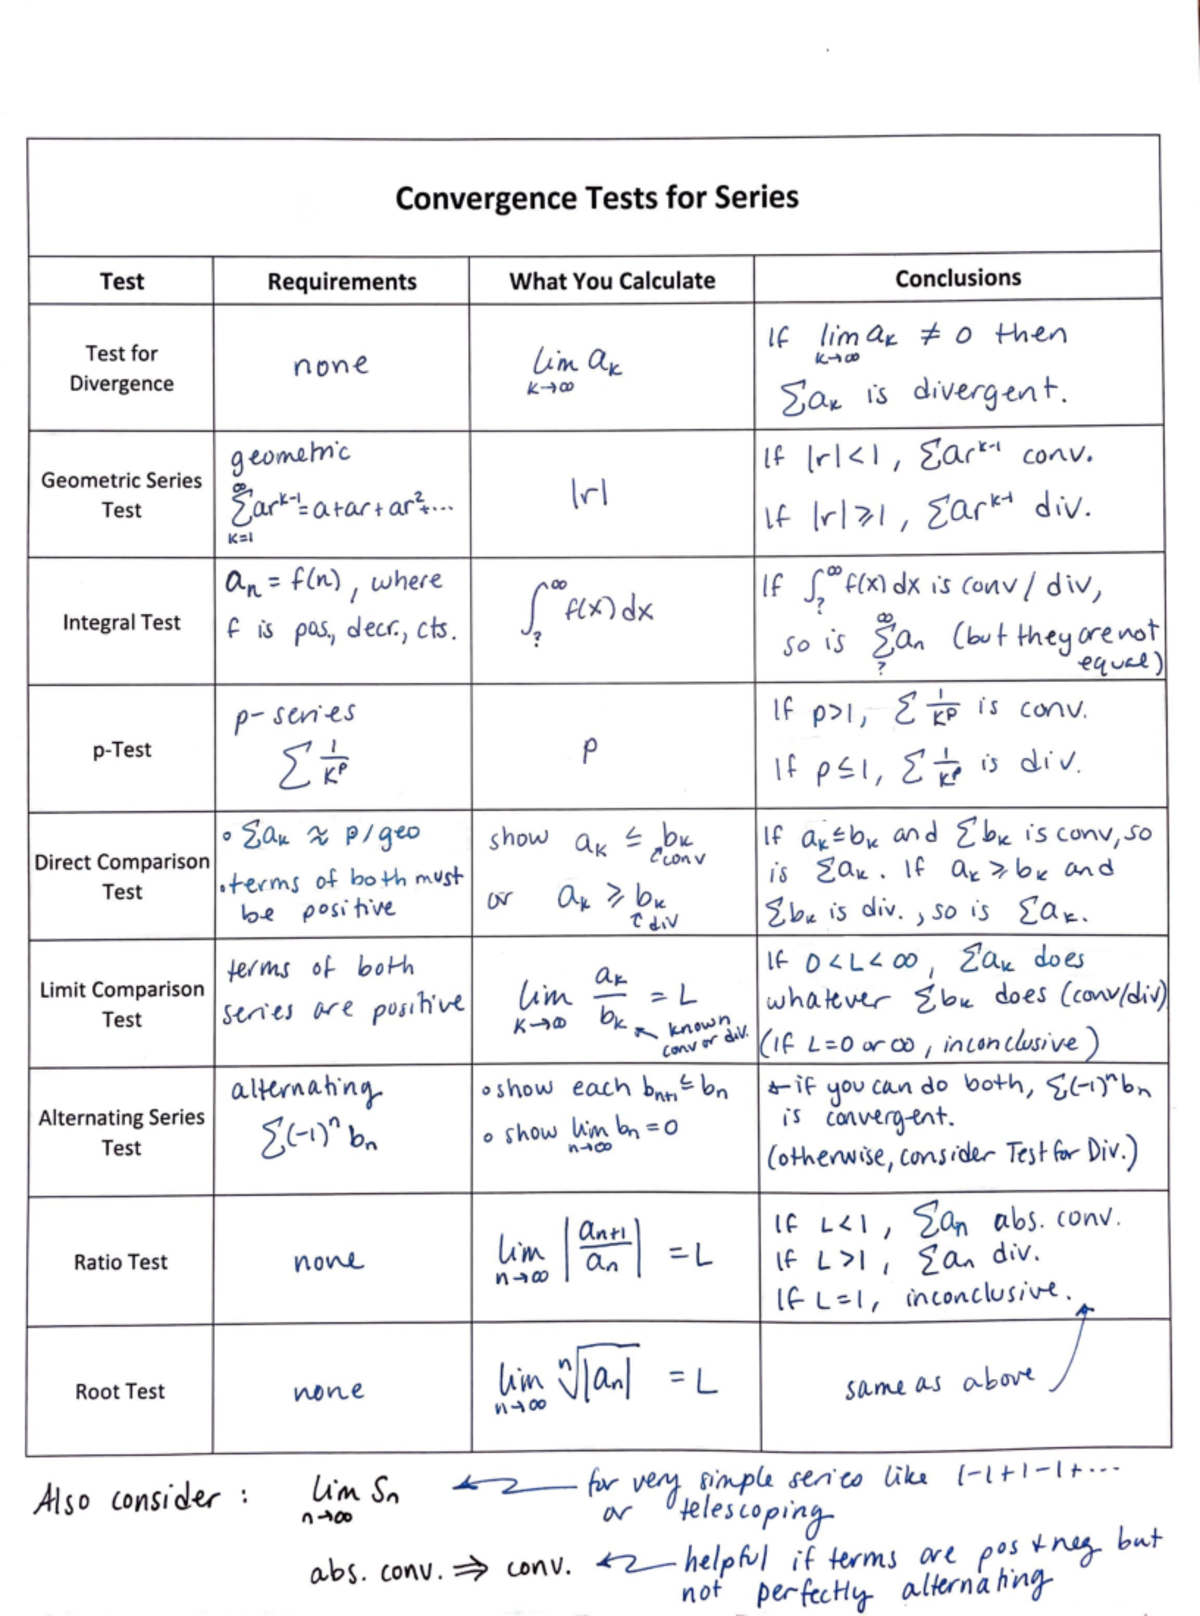 Convergence Tests for Series
Test Requirements What You Calculate Conclusions
Test for Divergence
none
lim aₖ
k→∞
If lim aₖ ≠ 0 then
k→∞
Σaₖ is divergent.
Geometric Series Test
geometric
∞
Σarᵏ⁻¹ = a+ar+ar²+...
k=1
|r|
If |r|<1, Σarᵏ⁻¹ conv.
If |r|⩾1, Σarᵏ⁻¹ div.
Integral Test
aₙ = f(n), where
f is pos., decr., cts.
∫?^∞ f(x)dx
If ∫?^∞ f(x)dx is conv/div,
∞
so is Σaₙ (but they are not
?
equal)
p-Test
p-series
Σ 1/kᵖ
p
If p>1, Σ 1/kᵖ is conv.
If p≤1, Σ 1/kᵖ is div.
Direct Comparison Test
• Σaₖ ≈ p/geo
• terms of both must
be positive
show aₖ ≤ bₖ
↑conv
or aₖ ⩾ bₖ
↑div
If aₖ≤bₖ and Σbₖ is conv, so
is Σaₖ. If aₖ⩾bₖ and
Σbₖ is div., so is Σaₖ.
Limit Comparison Test
terms of both
series are positive
lim aₖ/bₖ = L
k→∞
← known
conv or div.
If 0<L<∞, Σaₖ does
whatever Σbₖ does (conv/div)
(if L=0 or ∞, inconclusive)
Alternating Series Test
alternating
Σ(-1)ⁿ bₙ
• show each bₙ₊₁ ≤ bₙ
• show lim bₙ = 0
n→∞
← if you can do both, Σ(-1)ⁿbₙ
is convergent.
(otherwise, consider Test for Div.)
Ratio Test
none
lim |aₙ₊₁/aₙ| = L
n→∞
If L<1, Σaₙ abs. conv.
If L>1, Σaₙ div.
If L=1, inconclusive.
Root Test
none
lim ⁿ√|aₙ| = L
n→∞
same as above
Also consider: lim Sₙ ← for very simple series like 1-1+1-1+...
n→∞
or telescoping
abs. conv. ⇒ conv. ← helpful if terms are pos & neg but
not perfectly alternating